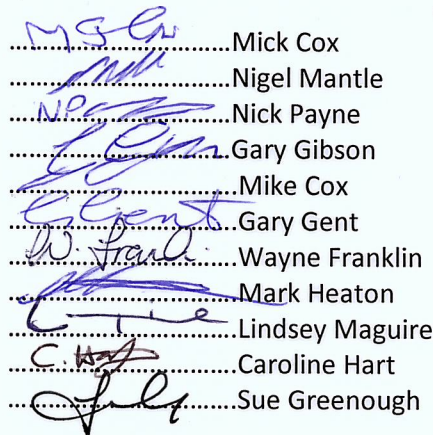 ..............................Mick Cox
..............................Nigel Mantle
NP..............................Nick Payne
..............................Gary Gibson
..............................Mike Cox
G Gent..............................Gary Gent
W. Frank..............................Wayne Franklin
..............................Mark Heaton
..............................Lindsey Maguire
C. Hart..............................Caroline Hart
..............................Sue Greenough